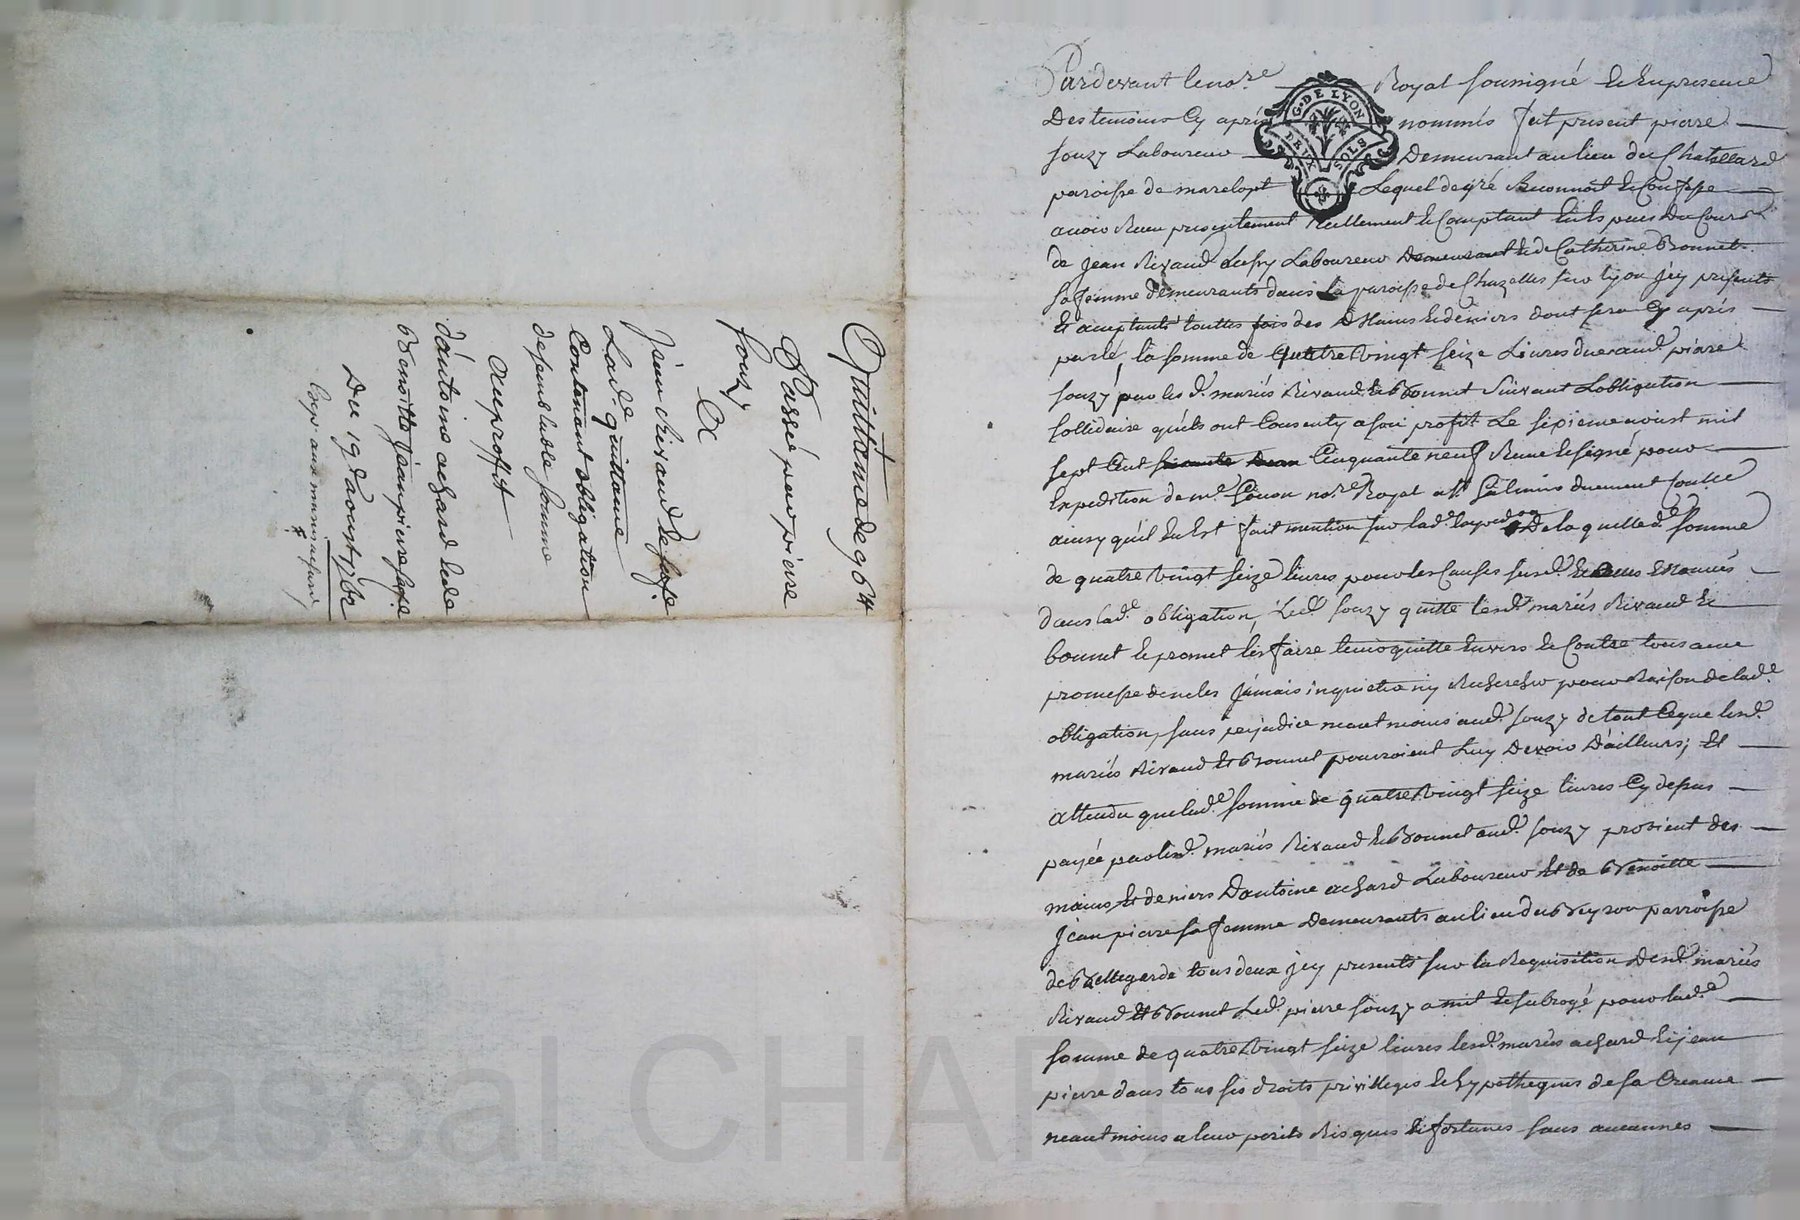 Quittance de 96 lt
Passé par pierre
souzy
A
Jean Rivaud & sa fe.
Lad.e quittance
Contenant obligation
de semblable somme
au proffit
d'antoine achard & de
Benoitte Jeanpierre sa fe.
Du 19e aoust
Pardevant le no.re Royal soussigné & En presence
Des temoins Cy après nommés fut present pierre
souzy Laboureur Demeurant au lieu du Chatellard
paroisse de marclopt Lequel de gré Reconnoit & Confesse
avoir Reçu presentement Reellement & Comptant
de jean Rivaud Laboureur & de Catherine Bonnet
sa femme demeurants dans la paroisse de Chazelles sur lyon jcy presents
& acceptants touttes fois des Mains & deniers dont sera Cy après
parlé, la somme de quatre Vingt seize Livres due aud. pierre
souzy par lesd. mariés Rivaud & Bonnet Suivant Lobligation
sollidaire quils ont Consenty a son profit Le sixieme aoust mil
sept Cent Cinquante neuf Reçue & signé pour
Expedition de me no.re Royal a St Galmier duement Controllé
ainsy qu'il En Est fait mention sur lad.e Expedon De laquelle d.e somme
de quatre Vingt seize livres pour les Causes susd. Enoncés
dans lad.e obligation, Led. souzy quitte lesd. mariés Rivaud &
bonnet & promet les faire tenir quitte Envers & Contre tous avec
promesse de ne les jamais inquieter ny Rechercher pour Raison de lad.e
obligation, sans prejudice neantmoins aud. souzy de tout Ce que lesd.
mariés Rivaud & Bonnet pourroient Luy Devoir D'ailleurs; Et
attendu que lad.e somme de quatre Vingt seize livres Cy dessus
payée par lesd. mariés Rivaud & Bonnet aud. souzy provient des
mains Et deniers D'antoine achard Laboureur Et de Benoitte
Jeanpierre sa femme Demeurants au lieu du Beyron parroisse
de Bellegarde tous deux jcy presents sur la Requisition Desd. mariés
Rivaud & Bonnet Led. pierre souzy a mit & subrogé pour lad.e
somme de quatre Vingt seize livres lesd. mariés achard & jean
pierre dans tous ses droits privilleges & hypotheques de sa Creance
neantmoins a leur perils Risques & fortunes sans aucunnes
G. DE LYON
DEUX SOLS
Pascal CHARLYRON